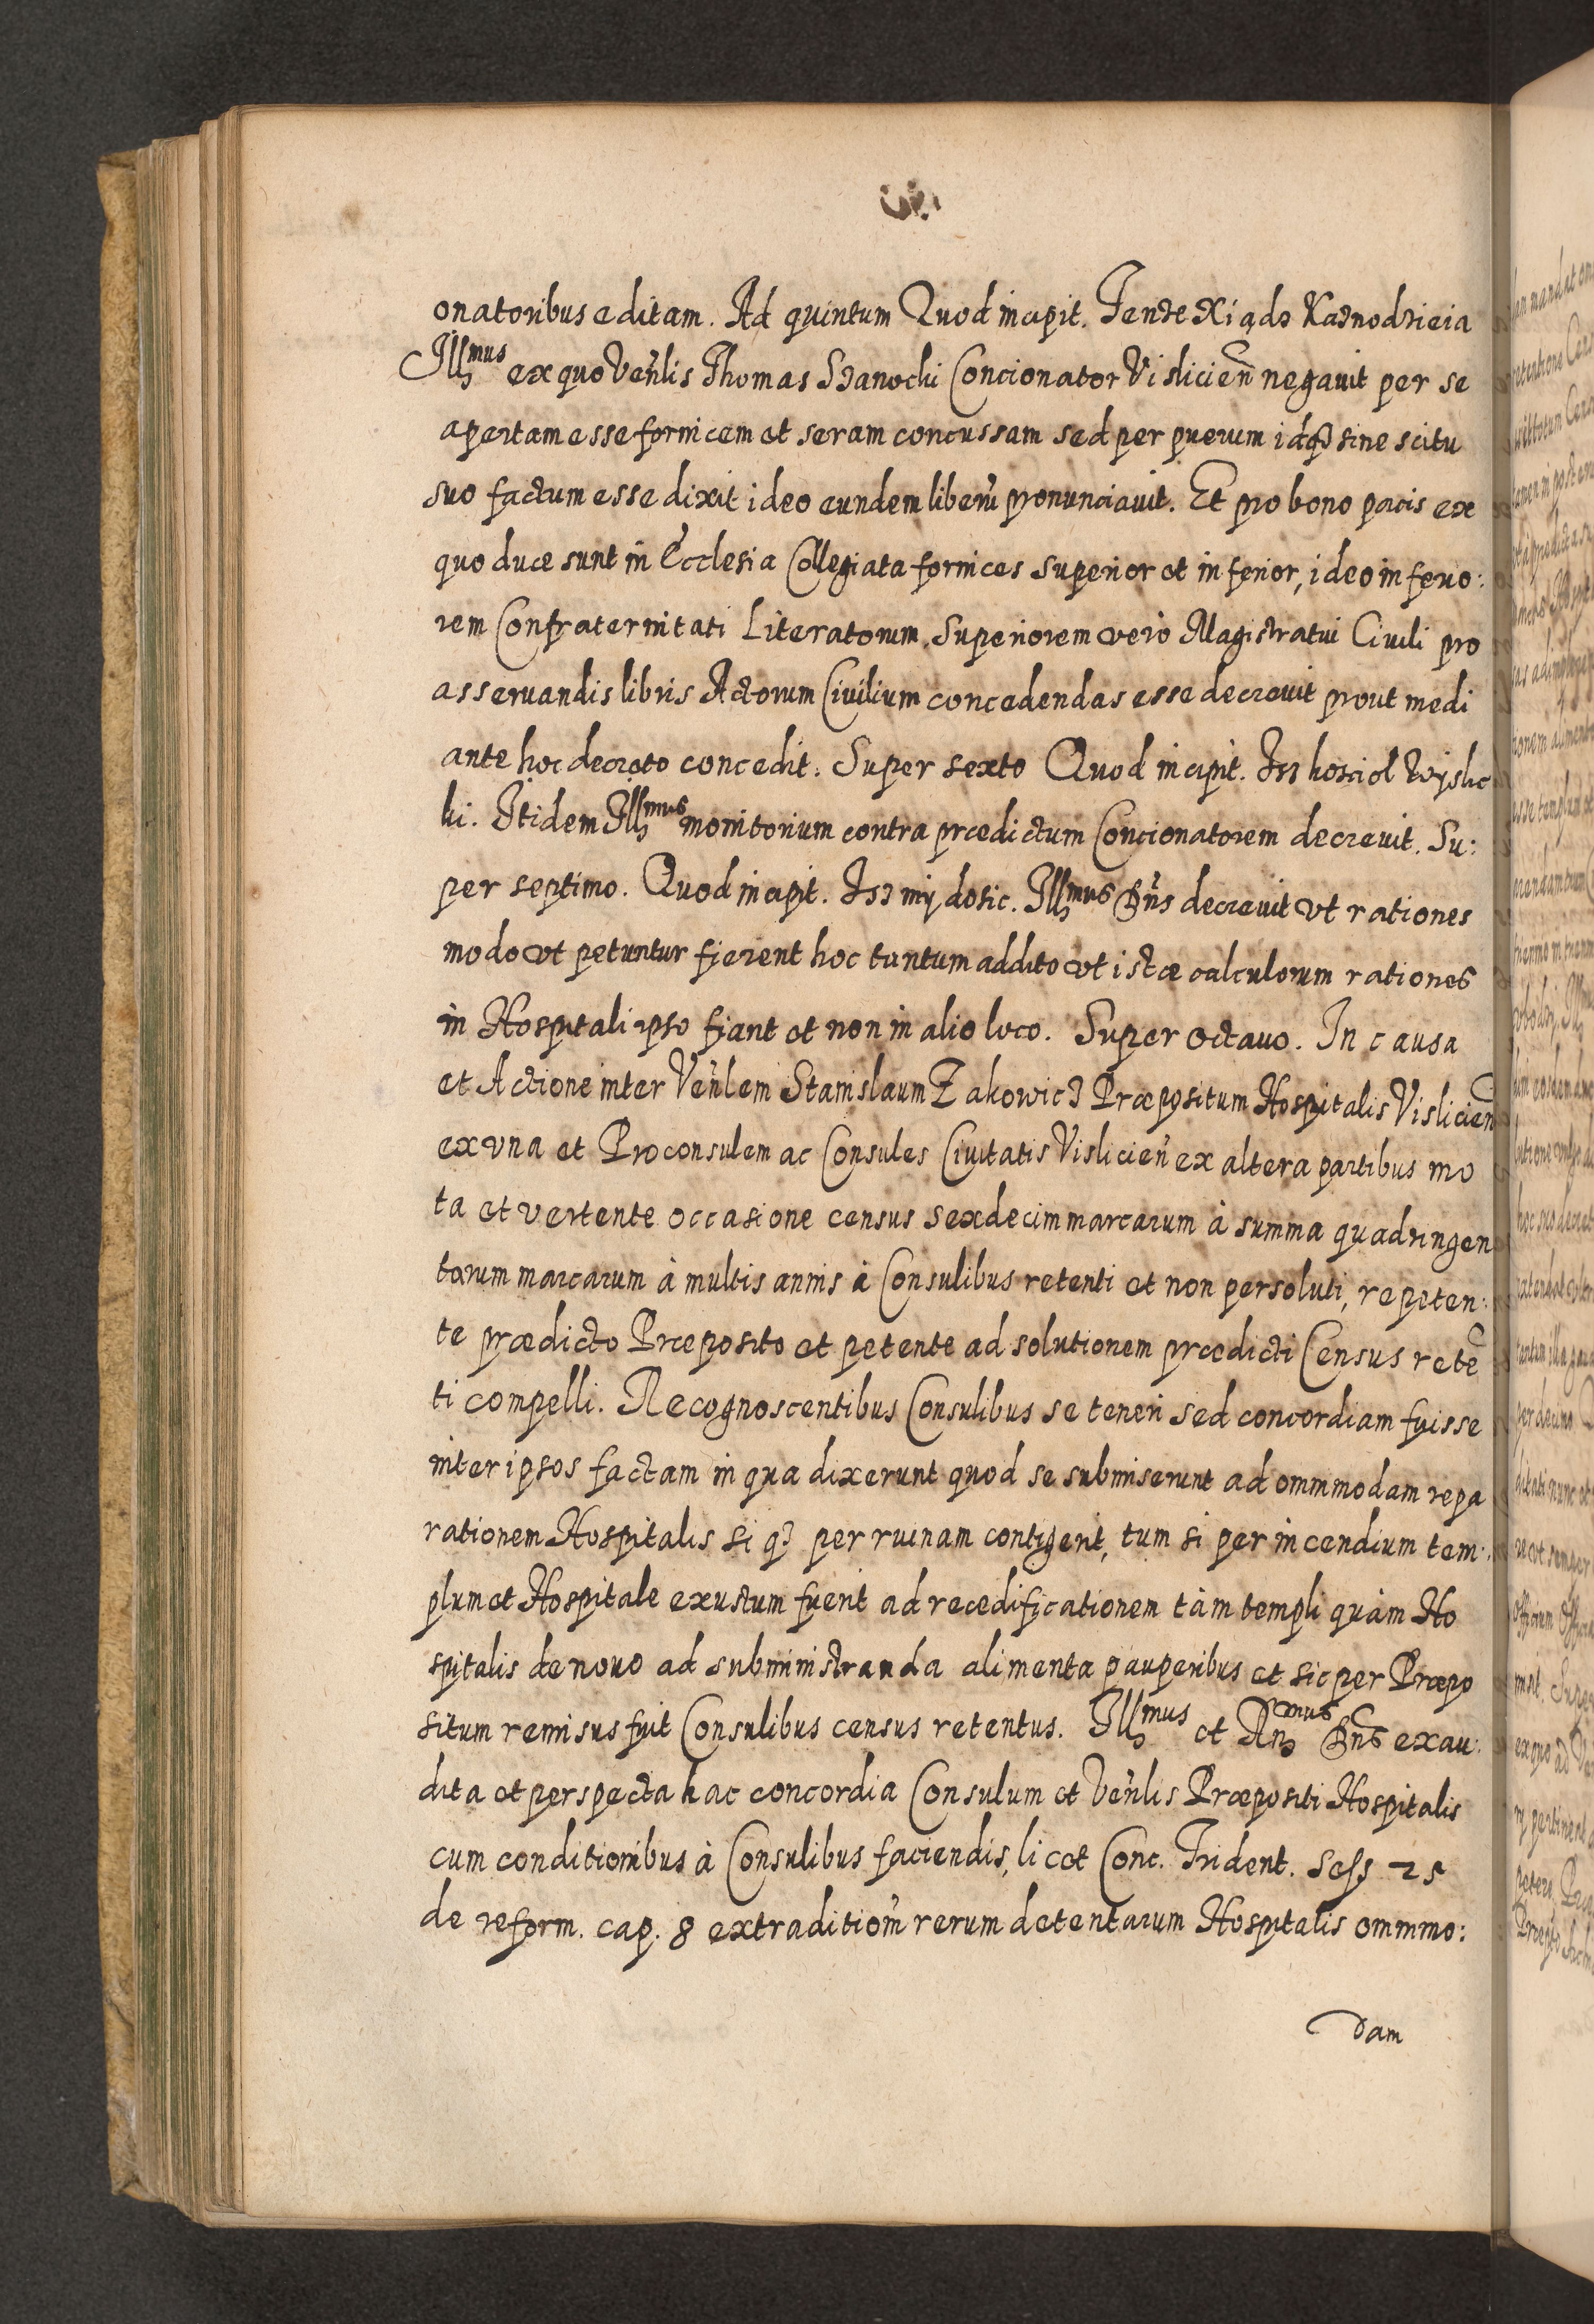 onatoribus editam. Ad quintum Quod incipit. Tenże Xiądz Kaznodzieia
Illmus ex quo Venlis Thomas Szanocki Concionator Vislicien negauit per se
apertam esse fornicem et seram concussam sed per puerum idq3 sine scitu
suo factum esse dixit ideo eundem liberu pronunciauit. Et pro bono pacis ex
quo duæ sunt in Ecclesia Collegiata fornices superior et inferior, ideo inferio:
rem Confraternitati Literatorum. Superiorem vero Magistratui Ciuili pro
asseruandis libris Actorum Ciuilium concedendas esse decreuit prout medi
ante hoc decreto concedit. Super sexto Quod incipit. Isz kosciol Wyslic
ki. Itidem Illmus monitorium contra prædictum Concionatorem decreuit. Su:
per septimo. Quod incipit. Isz my dosic. Illmus Dns decreuit vt rationes
modo vt petuntur fierent hoc tantum addito vt istæ calculorum rationes
in Hospitali ipso fiant et non in alio loco. Super octauo. In causa
et Actione inter Venlem Stanislaum Zakowicz Præpositum Hospitalis Vislicien
ex vna et Proconsulem ac Consules Ciuitatis Vislicien ex altera partibus mo
ta et vertente occasione census sexdecim marcarum à summa quadringen
torum marcarum à multis annis à Consulibus retenti et non persoluti, repeten:
te prædicto Præposito et petente ad solutionem prædicti Census retē
ti compelli. Recognoscentibus Consulibus se teneri sed concordiam fuisse
inter ipsos factam in qua dixerunt quod se submiserunt ad omnimodam repa
rationem Hospitalis si q3 per ruinam contigerit, tum si per incendium tem:
plum et Hospitale exustum fuerit ad reædificationem tàm templi quàm Ho
spitalis de nouo ad subministranda alimenta pauperibus et sic per Præpo
situm remisus fuit Consulibus census retentus. Illmus et Rndmus Dns exau:
dita et perspecta hac concordia Consulum et Venlis Præpositi Hospitalis
cum conditionibus à Consulibus faciendis, licet Conc. Trident. Sess 25
de reform. cap. 8 extraditiom rerum detentarum Hospitalis omnimo:
dam